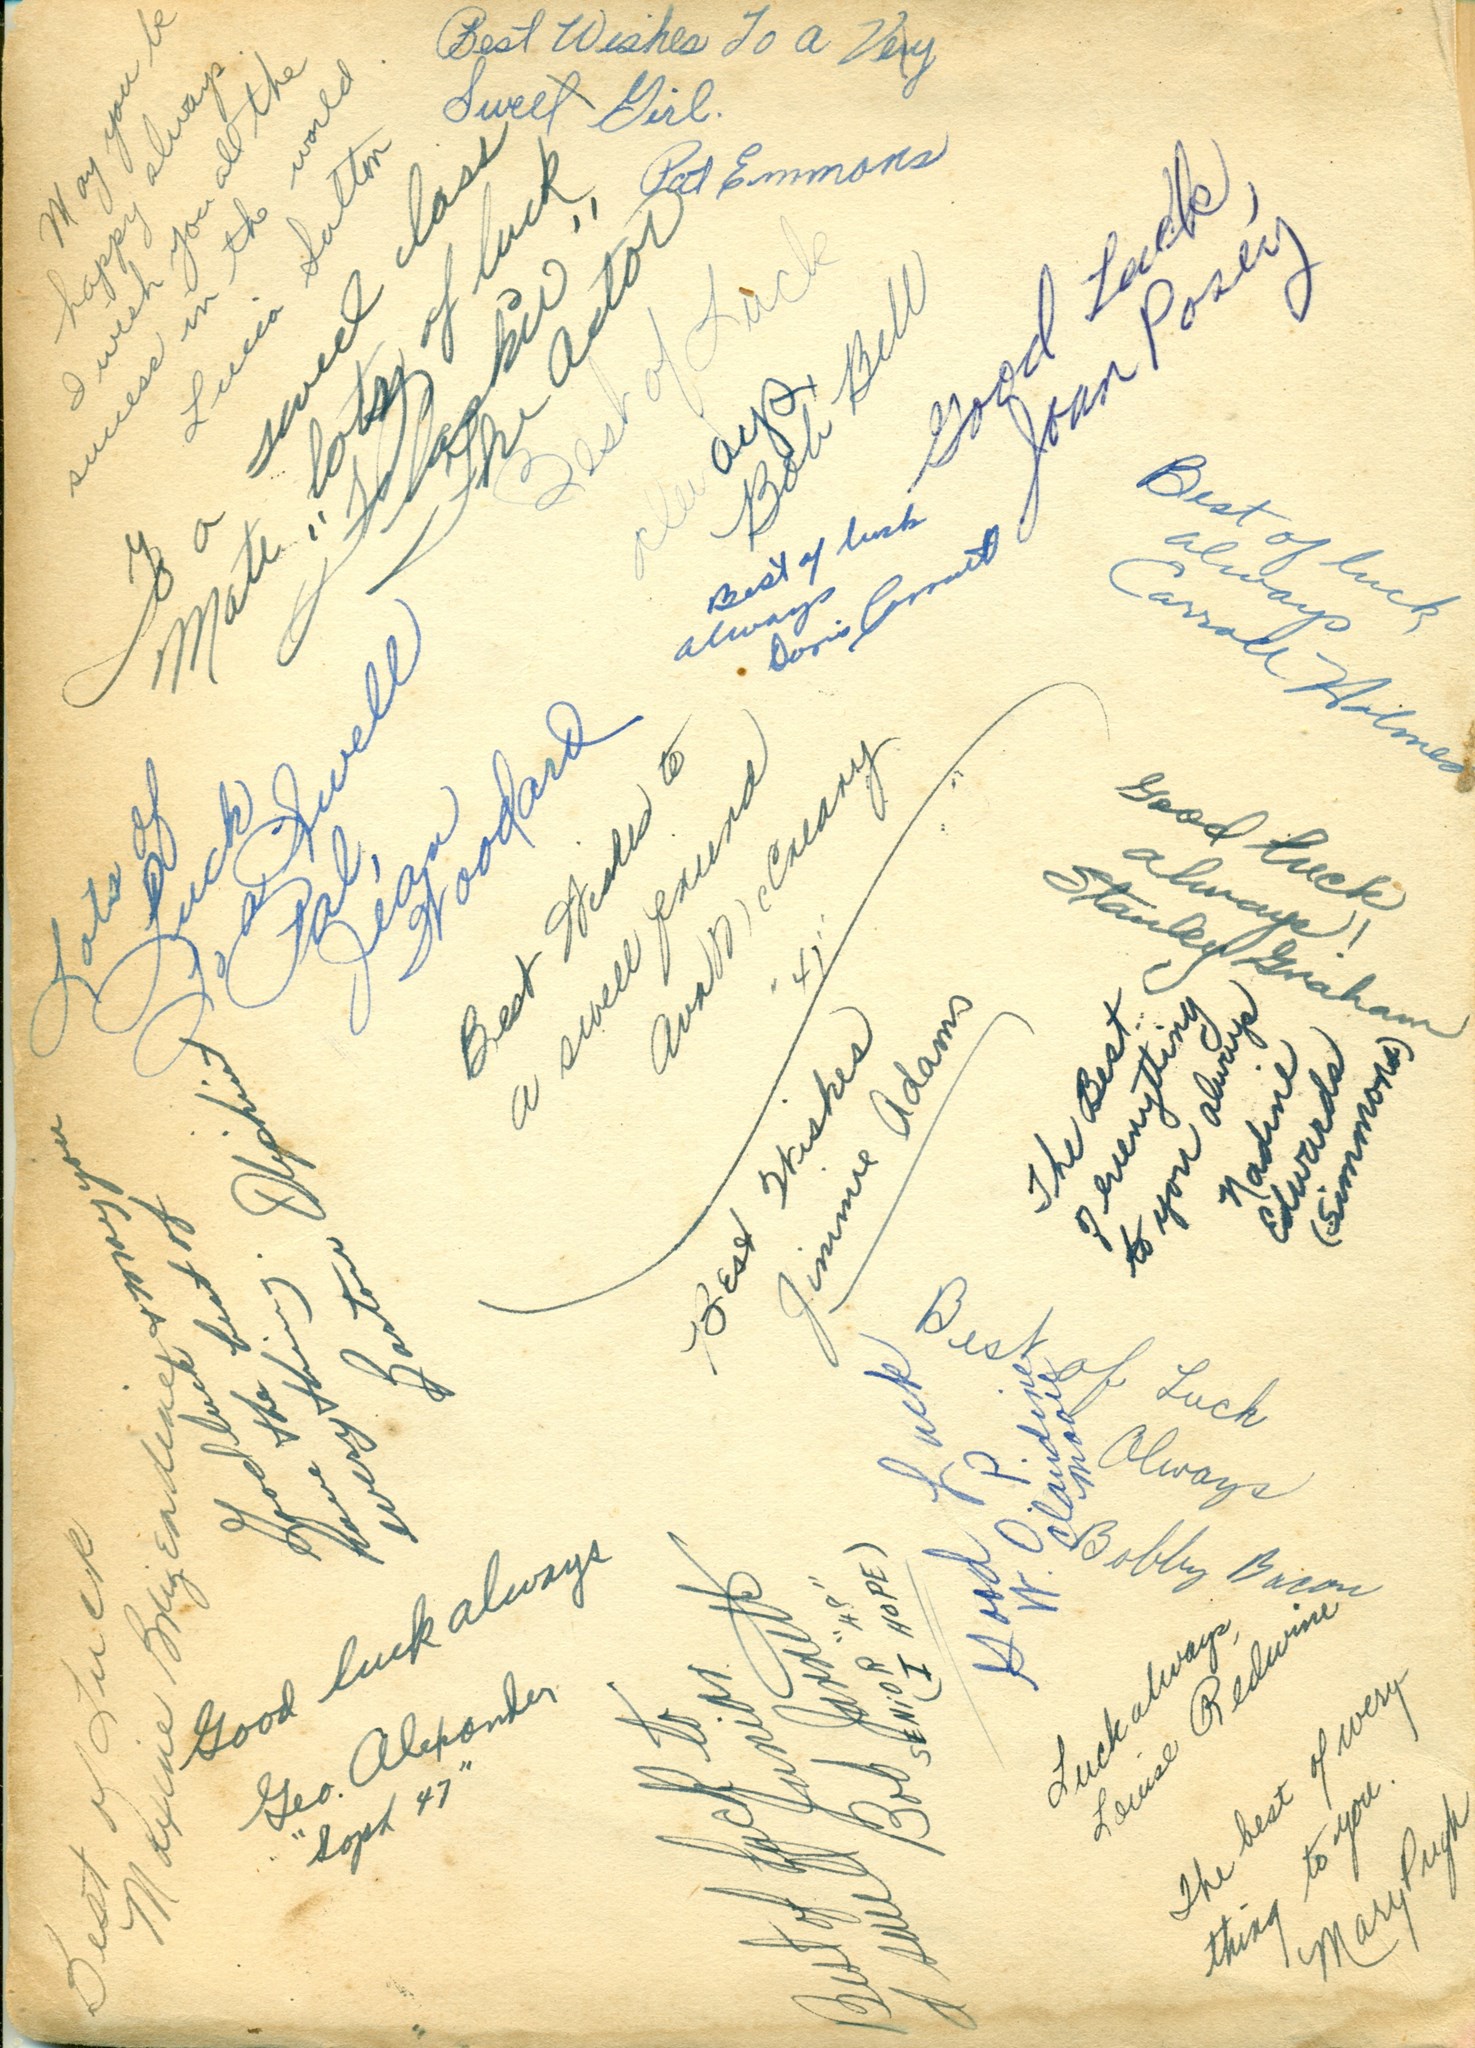 Best Wishes To a Very
Sweet Girl.
Pat Emmons
May you be
happy always.
I wish you all the
success in the world.
Lucia Sutton
To
a swell class
Mate "lots of luck
"
The Actor
Best of Luck
always,
Bob Bell
Good Luck,
Joan Posey
Best of luck
always
Doris
Best of luck,
always
Carroll Holmes
Lots of
Luck
To a Swell
Pal,
Jean
Woodard
Best Wishes to
a swell friend
Ava McCreary
"47"
Good luck
always!
Stanley Graham
The Best
of everything
to you always
Nadine
Edwards
(Simmons)
Best Wishes
Jimmie Adams
Good luck & may you
have the best of
everything.
Barton
Best of Luck
Maxine Brizendine
Good luck always
Geo. Alexander
"Soph 47"
Best of Luck to
a swell Junior
Bob "48"
SENIOR
(I HOPE)
Good Luck
W. P.
Claudine
Moore
Best of Luck
Always
Bobby Bacon
Luck always,
Louise Redwine
The best of every
thing to you.
Mary Pugh